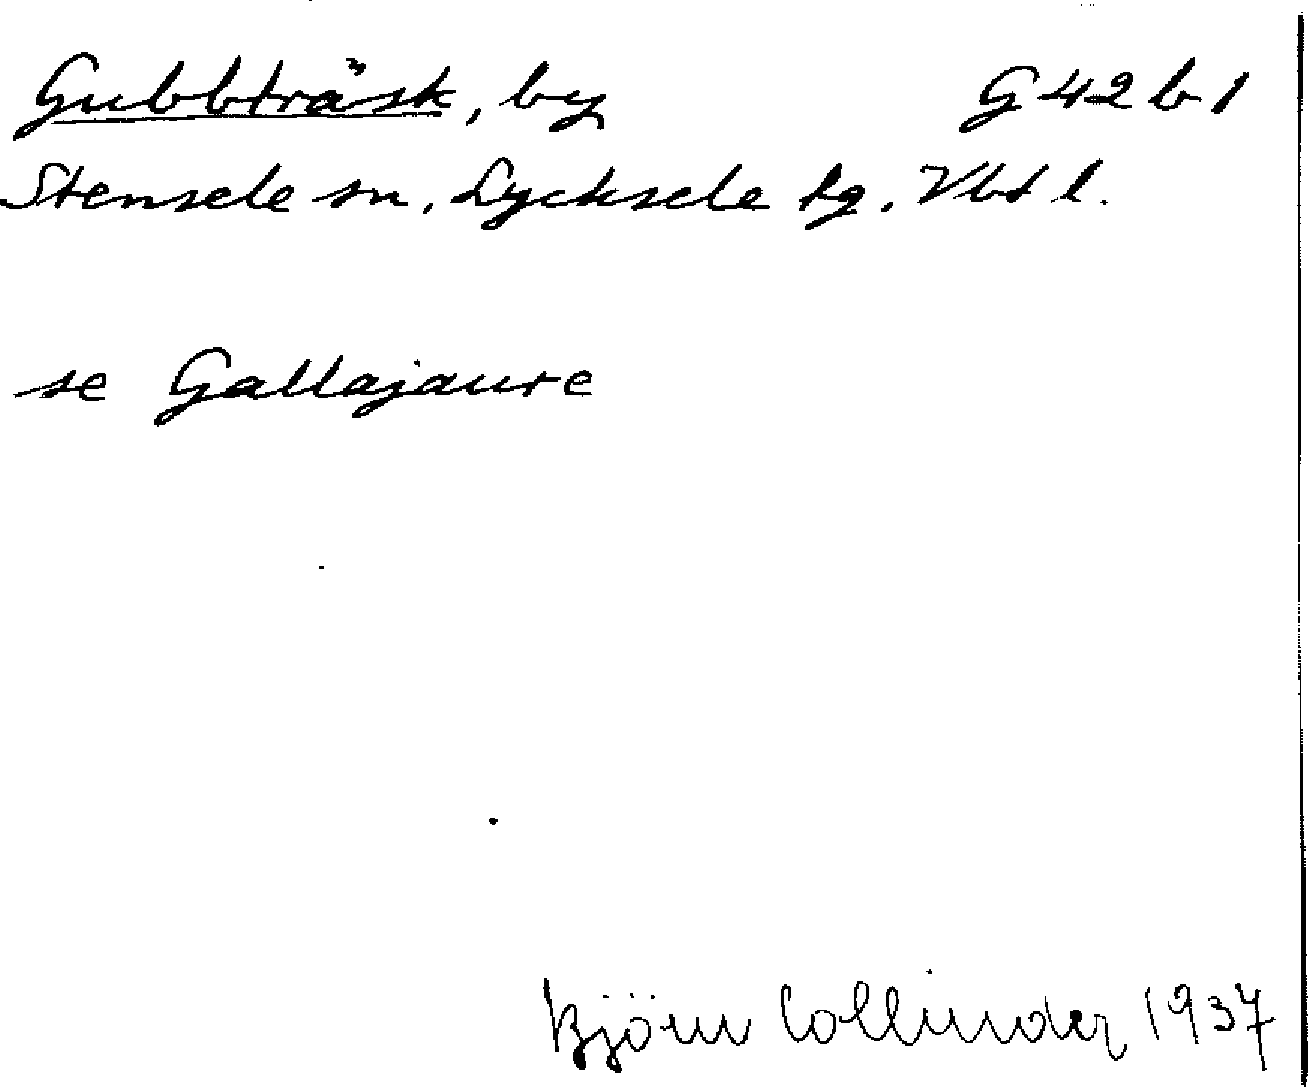 Gubbträsk, by G 42 b 1
Stensele sn, Lycksele tg. Vbt l.
se Gallajaure
Björn Collinder 1937